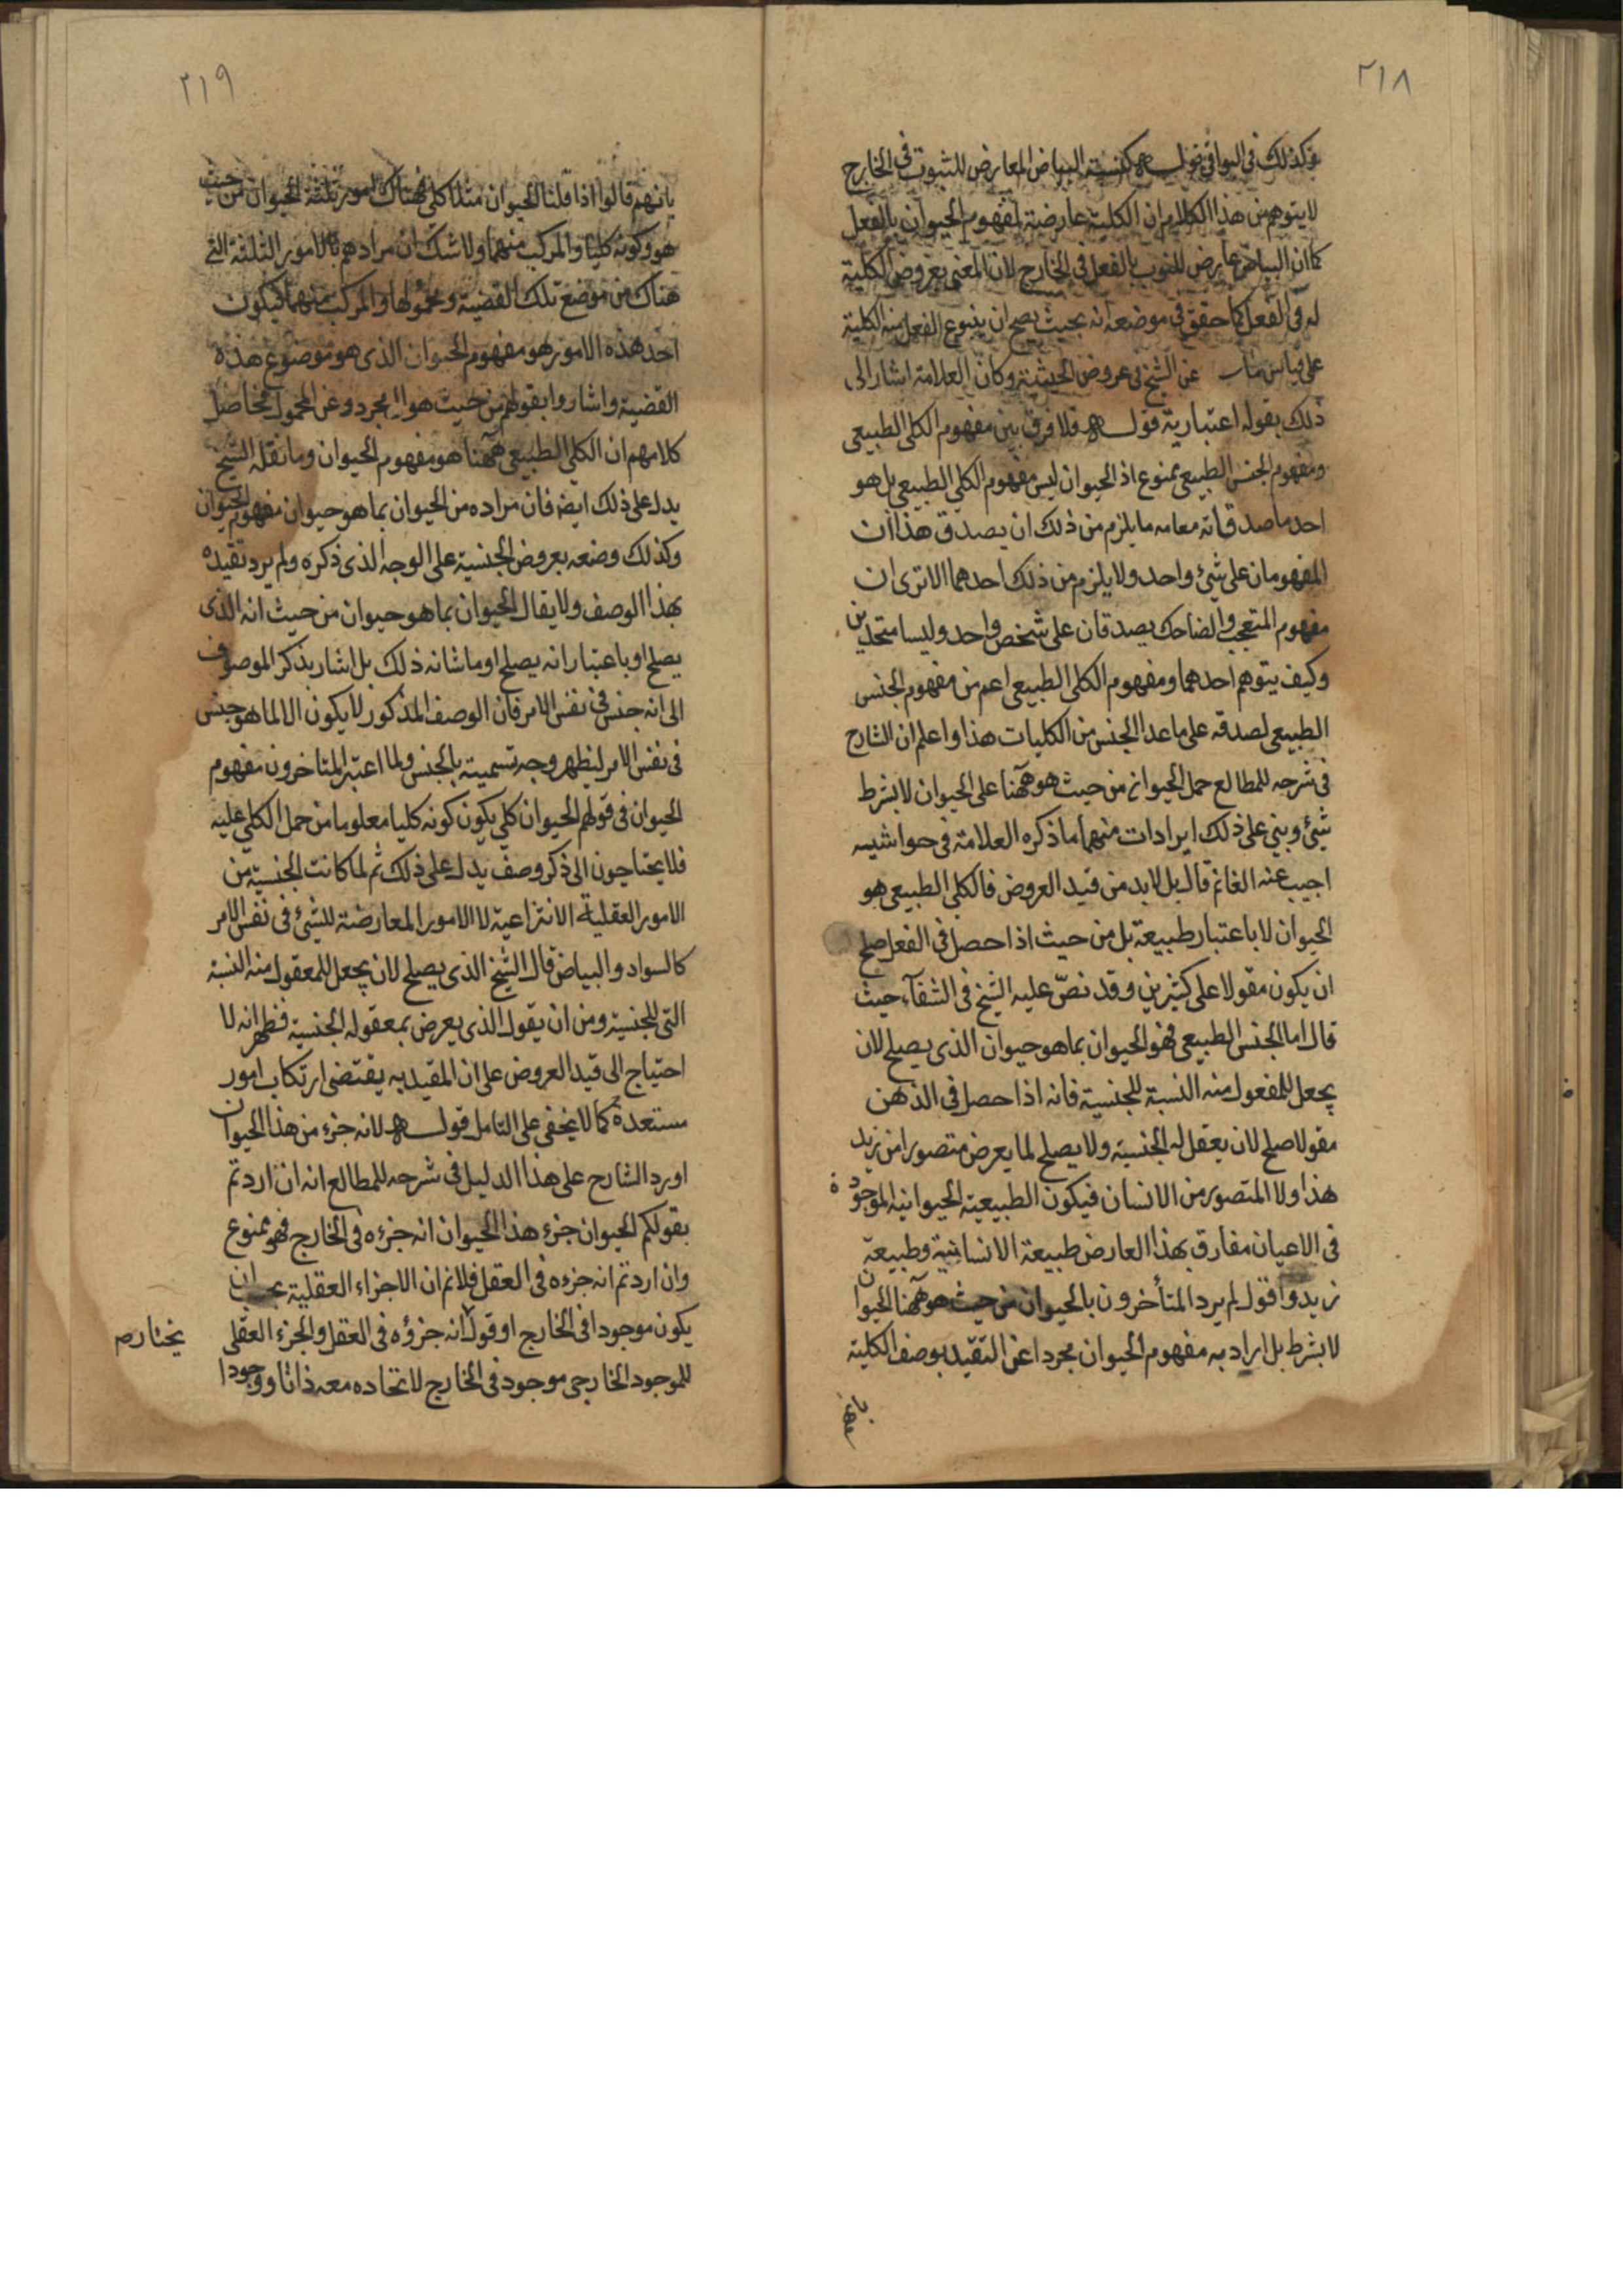 ٢١٨
وكذلك في البواقي قوله كنسبة البياض المعارض للثبوت في الخارج
لا يتوهم من هذا الكلام ان الكلية عارضة لمفهوم الحيوان بالفعل
كما ان البياض عارض للثوب بالفعل في الخارج لان المعنى بعروض الكلية
له في الفعل كما حقق في موضعه انه بحيث يصح ان ينتزع الفعل منه الكلية
على قياس عن الشيخ في عروض الجنسية وكان العلامة اشار الى
ذلك بقوله اعتبارية قوله فلا فرق بين مفهوم الكلي الطبيعي
ومفهوم الجنس الطبيعي ممنوع اذ الحيوان ليس مفهوم الكلي الطبيعي بل هو
احد ما صدقاته معامه ما يلزم من ذلك ان يصدق هذا ان
المفهومان على شئ واحد ولا يلزم من ذلك احدهما الا ترى ان
مفهوم المتعجب والضاحك يصدقان على شخص واحد وليسا متحدين
وكيف يتوهم احدهما ومفهوم الكلي الطبيعي اعم من مفهوم الجنس
الطبيعي لصدقه على ما عدا الجنس من الكليات هذا واعلم ان الشارح
في شرحه للمطالع حمل الحيوان من حيث هو ههنا على الحيوان لا بشرط
شئ وبني على ذلك ايرادات منها ما ذكره العلامة في حواشيه
اجيب عنه الغانم قال بل لا بد من قيد العروض فالكلي الطبيعي هو
الحيوان لا باعتبار طبيعة بل من حيث اذا حصل في الفعل صلح
ان يكون مقولا على كثيرين وقد نصّ عليه الشيخ في الشفآء حيث
قال اما الجنس الطبيعي فهو الحيوان بما هو حيوان الذي يصلح لان
يجعل للمفعول منه النسبة للجنسية فانه اذا حصل في الذهن
مقولا صلح لان يعقل له الجنسية ولا يصلح لما يعرض متصورا من زيد
هذا ولا المتصور من الانسان فيكون الطبيعية الحيوانيه الموجودة
في الاعيان مفارق بهذا العارض طبيعة الانسانية وطبيعة
زيد واقول لم يرد المتأخرون بالحيوان من حيث هو ههنا الحيوان
لا بشرط بل اراد به مفهوم الحيوان مجردا عن التقيد بوصف الكلية
٢١٩
بانهم قالوا اذا قلنا الحيوان مثلا كلي فهناك امور ثلثة الحيوان من حيث
هو وكونه كليا والمركب منهما ولا شك ان مرادهم بالامور الثلثة التي
هناك من موضع تلك القضية ومحمولها والمركب منهما فيكون
احد هذه الامور هو مفهوم الحيوان الذي هو موضوع هذه
القضية واشاروا بقولهم من حيث هو الى مجرده عن المحمول فحاصل
كلامهم ان الكلي الطبيعي ههنا هو مفهوم الحيوان وما نقله الشيخ
يدل على ذلك ايضا فان مراده من الحيوان بما هو حيوان مفهوم الحيوان
وكذلك وضعه بعروض الجنسية على الوجه الذي ذكره ولم يرد تقيده
بهذا الوصف ولا يقال الحيوان بما هو حيوان من حيث انه الذي
يصلح او باعتبار انه يصلح او ما شانه ذلك بل اشار بذكر الموصوف
الى انه جنس في نفس الامر فان الوصف المذكور لا يكون الا لما هو جنس
في نفس الامر ليظهر وجه تسميته بالجنس ولما اعتبر المتاخرون مفهوم
الحيوان في قولهم الحيوان كلي يكون كونه كليا معلوما من حمل الكلي عليه
فلا يحتاجون الى ذكر وصف يدل على ذلك ثم لما كانت الجنسية من
الامور العقلية الانتزاعية لا الامور المعارضة للشئ في نفس الامر
كالسواد والبياض قال الشيخ الذي يصلح لان يجعل للمعقول منه النسبة
التي للجنسية ومن ان يقول الذي يعرض بمعقوله الجنسية فظهر انه لا
احتياج الى قيد العروض على ان المقيد به يقتضي ارتكاب امور
مستعدة كما لا يخفى على التامل قوله لانه جزء من هذا الحيوان
اورد الشارح على هذا الدليل في شرحه للمطالع انه ان اردتم
بقولكم الحيوان جزء هذا الحيوان انه جزءه في الخارج فهو ممنوع
وان اردتم انه جزءه في العقل فلانم ان الاجزاء العقلية يجب ان
يكون موجودا في الخارج او قول انه جزؤه في العقل والجزء العقلي
يختاره
للموجود الخارجي موجود في الخارج لاتحاده معه ذاتا ووجودا